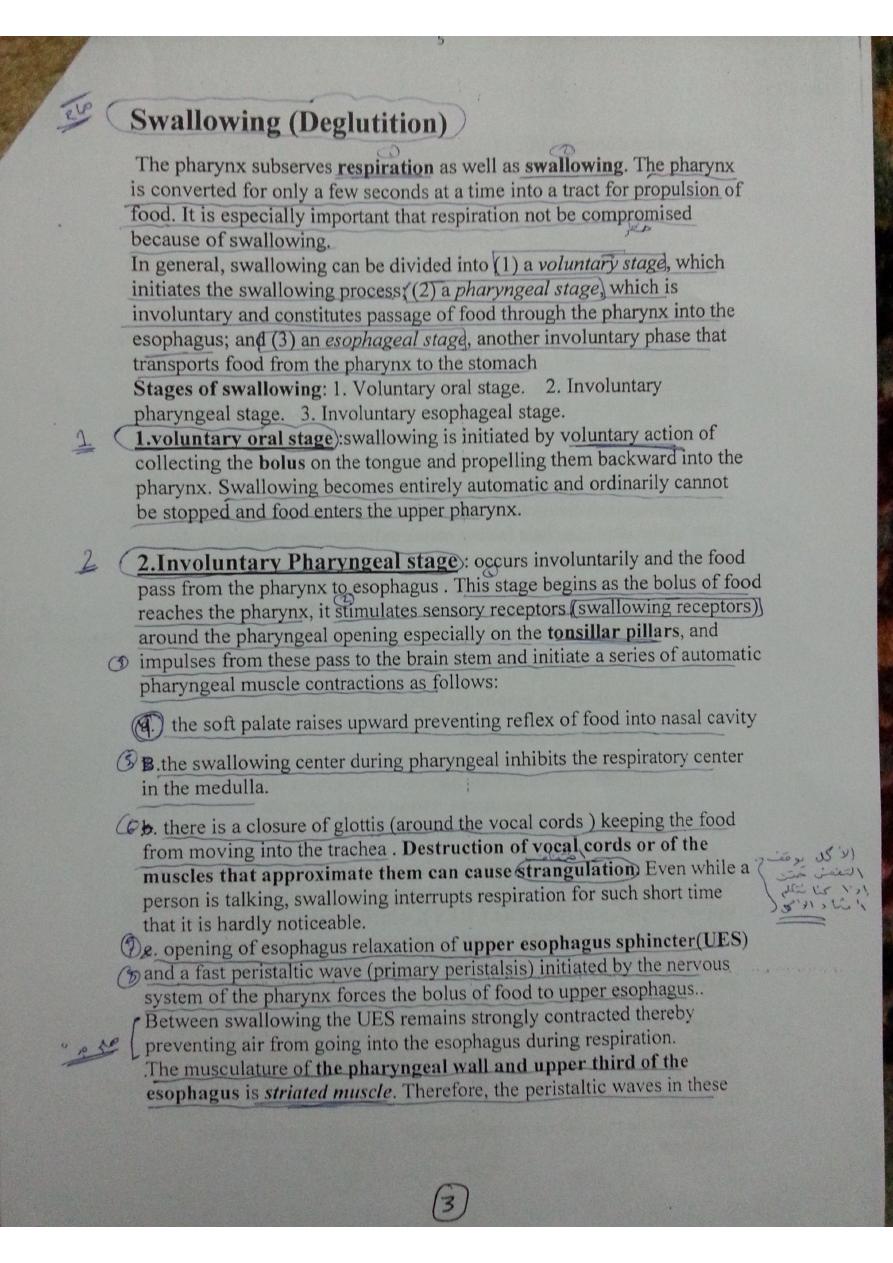 5
Swallowing (Deglutition)
(1) (2)
The pharynx subserves respiration as well as swallowing. The pharynx
is converted for only a few seconds at a time into a tract for propulsion of
food. It is especially important that respiration not be compromised
because of swallowing.
In general, swallowing can be divided into (1) a voluntary stage, which
initiates the swallowing process; (2) a pharyngeal stage, which is
involuntary and constitutes passage of food through the pharynx into the
esophagus; and (3) an esophageal stage, another involuntary phase that
transports food from the pharynx to the stomach
Stages of swallowing: 1. Voluntary oral stage. 2. Involuntary
pharyngeal stage. 3. Involuntary esophageal stage.
1 1.voluntary oral stage:swallowing is initiated by voluntary action of
collecting the bolus on the tongue and propelling them backward into the
pharynx. Swallowing becomes entirely automatic and ordinarily cannot
be stopped and food enters the upper pharynx.
2 2.Involuntary Pharyngeal stage: occurs involuntarily and the food
pass from the pharynx to esophagus . This stage begins as the bolus of food
reaches the pharynx, it stimulates sensory receptors (swallowing receptors)
around the pharyngeal opening especially on the tonsillar pillars, and
(3) impulses from these pass to the brain stem and initiate a series of automatic
pharyngeal muscle contractions as follows:
the soft palate raises upward preventing reflex of food into nasal cavity
(5) B.the swallowing center during pharyngeal inhibits the respiratory center
in the medulla.
(6) b. there is a closure of glottis (around the vocal cords ) keeping the food
from moving into the trachea . Destruction of vocal cords or of the
muscles that approximate them can cause strangulation. Even while a
person is talking, swallowing interrupts respiration for such short time
that it is hardly noticeable.
الأكل يوقف
التنفس حتى
(7) e. opening of esophagus relaxation of upper esophagus sphincter(UES)
(8) and a fast peristaltic wave (primary peristalsis) initiated by the nervous
system of the pharynx forces the bolus of food to upper esophagus..
Between swallowing the UES remains strongly contracted thereby
preventing air from going into the esophagus during respiration.
The musculature of the pharyngeal wall and upper third of the
esophagus is striated muscle. Therefore, the peristaltic waves in these
3